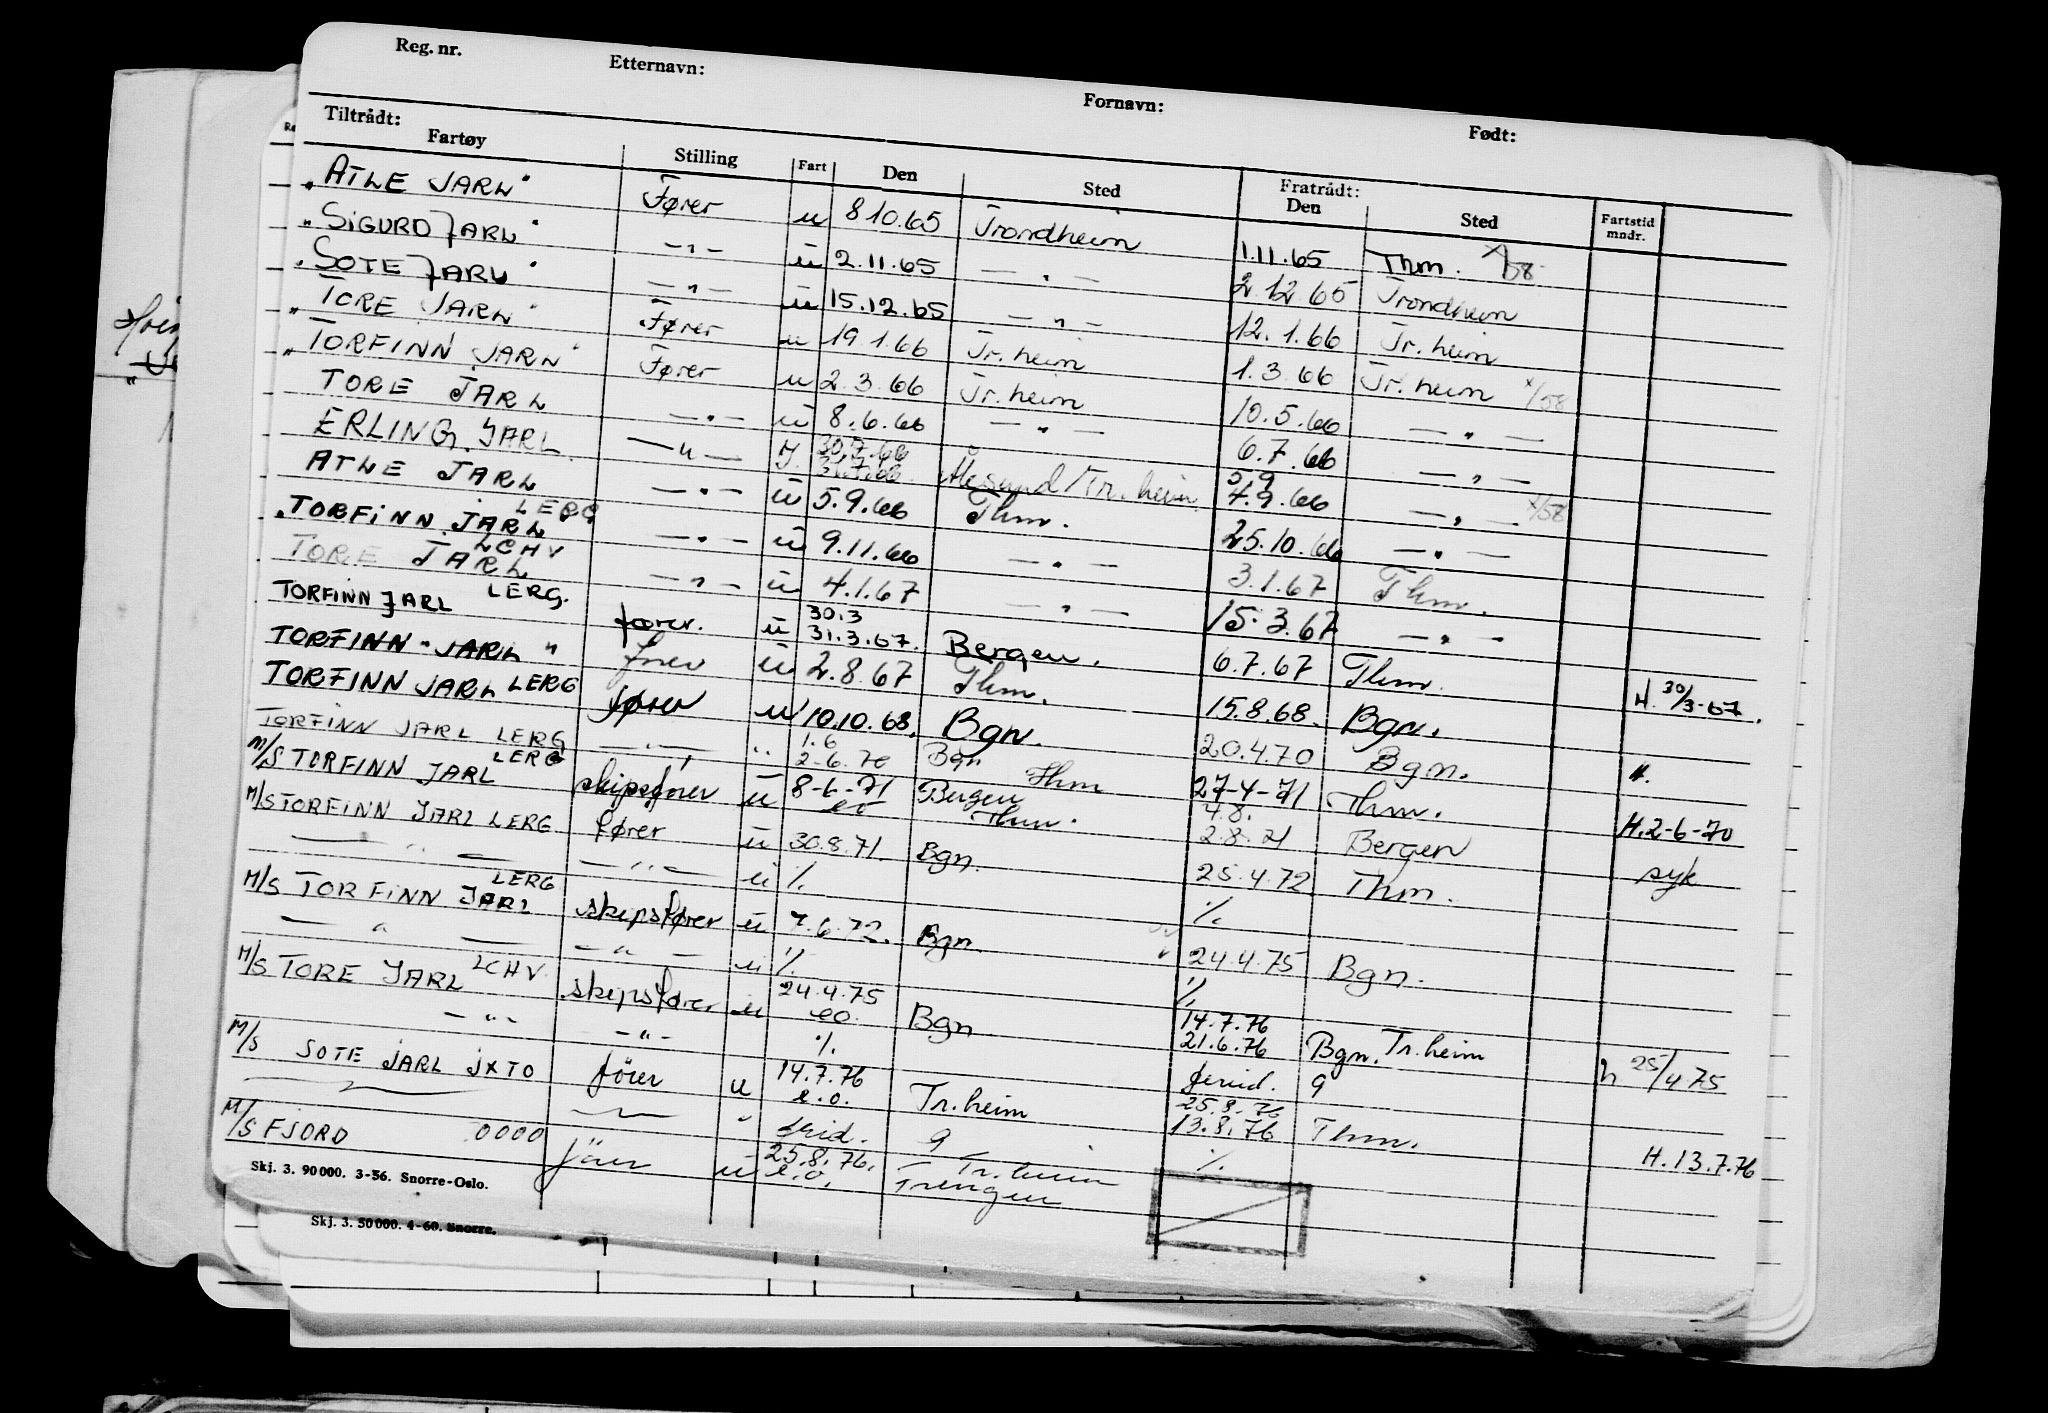 Reg. nr. Etternavn: Fornavn: Født:
Tiltrådt: Fratrådt:
Fartøy Stilling Fart Den Sted Den Sted Fartstid mndr.
"ATLE JARL" Fører u 8 10.65 Trondheim 1.11.65 Thm. x/58
"SIGURD JARL" — " — u 2.11.65 — " — 2.12 65 Trondheim
"SOTE JARL" — " — u 15.12.65 — " — 12.1.66 Tr.heim
"TORE JARL" Fører u 19 1.66 Tr.heim 1.3.66 Tr.heim x/58
"TORFINN JARL" Fører u 2.3.66 Tr.heim 10.5.66 — " —
TORE JARL — " — u 8.6.66 — " — 6.7.66 — " —
ERLING JARL — " — I. 30.7.66 31.7.66 Ålesund/Tr.heim 5/9 4.9.66 — " — x/58
ATLE JARL — " — u 5.9.66 Thm. 25.10.66 — " —
"TORFINN JARL LERG — " — u 9.11.66 — " — 3.1.67 Thm.
TORE JARL LCHV — " — u 4.1.67 — " — 15.3.67 — " —
TORFINN JARL LERG. fører. u 30.3 31.3.67. Bergen. 6.7.67 Thm. H. 30/3-67.
TORFINN "JARL" fører u 2.8.67 Thm. 15.8.68. Bgn.
TORFINN JARL LERG fører u 10.10.68. Bgn. 20.4.70 Bgn. H.
TORFINN JARL LERG — " — " 1.6 2-6.70 Bgn Thm 27-4-71 Thm. H.2-6-70
M/S TORFINN JARL LERG skipsfører u 8-6-71 eo Bergen Thm. 4.8. 2.8.71 Bergen syk
M/S TORFINN JARL LERG fører u 30.8.71. Bgn. 25.4.72 Thm.
— " — — " — u %. %.
M/S TORFINN JARL LERG skipsfører u 7.6.72. Bgn. 24.4.75 Bgn.
— " — — " — u %. %.
M/S TORE JARL LCHV. skipsfører u 24.4.75 eo. Bgn 14.7.76 21.6.76 Bgn. Tr.heim h 25/4 75
— " — — " — %. 9
M/S SOTE JARL JXTO förer u 14.7.76 e.o. Tr.heim 25.8.76 13.8.76 Thm. H.13.7.76
" 9 %.
M/S FJORD 0000 förer u 25.8.76. e.o. Tr.heim
Skj. 3. 90 000. 3-56. Snorre-Oslo.
Skj. 3. 50 000. 4-60. Snorre.